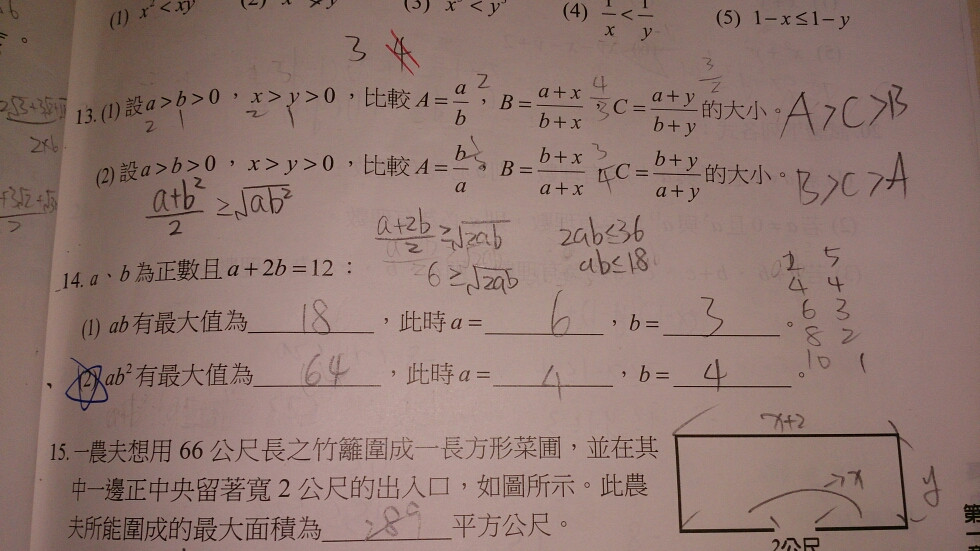 (1) x² < xy (2) (3) x³ < y³ (4) 1/x < 1/y (5) 1−x ≤ 1−y
3 4
13. (1) 設 a > b > 0 ，x > y > 0 ，比較 A = a/b ，B = (a+x)/(b+x) ，C = (a+y)/(b+y) 的大小。 A > C > B
2 1 2 1 2 4/3 3/2
(2) 設 a > b > 0 ，x > y > 0 ，比較 A = b/a ，B = (b+x)/(a+x) ，C = (b+y)/(a+y) 的大小。 B > C > A
(a+b²)/2 ≥ √(ab²)
(a+2b)/2 ≥ √(2ab) 2ab ≤ 36
6 ≥ √(2ab) ab ≤ 18
14. a、b 為正數且 a + 2b = 12：
(1) ab 有最大值為 18 ，此時 a = 6 ，b = 3 。
(2) ab² 有最大值為 64 ，此時 a = 4 ，b = 4 。
2 5
4 4
6 3
8 2
10 1
15. 一農夫想用 66 公尺長之竹籬圍成一長方形菜圃，並在其
中一邊正中央留著寬 2 公尺的出入口，如圖所示。此農
夫所能圍成的最大面積為 289 平方公尺。
x+2
x
y
2公尺
第